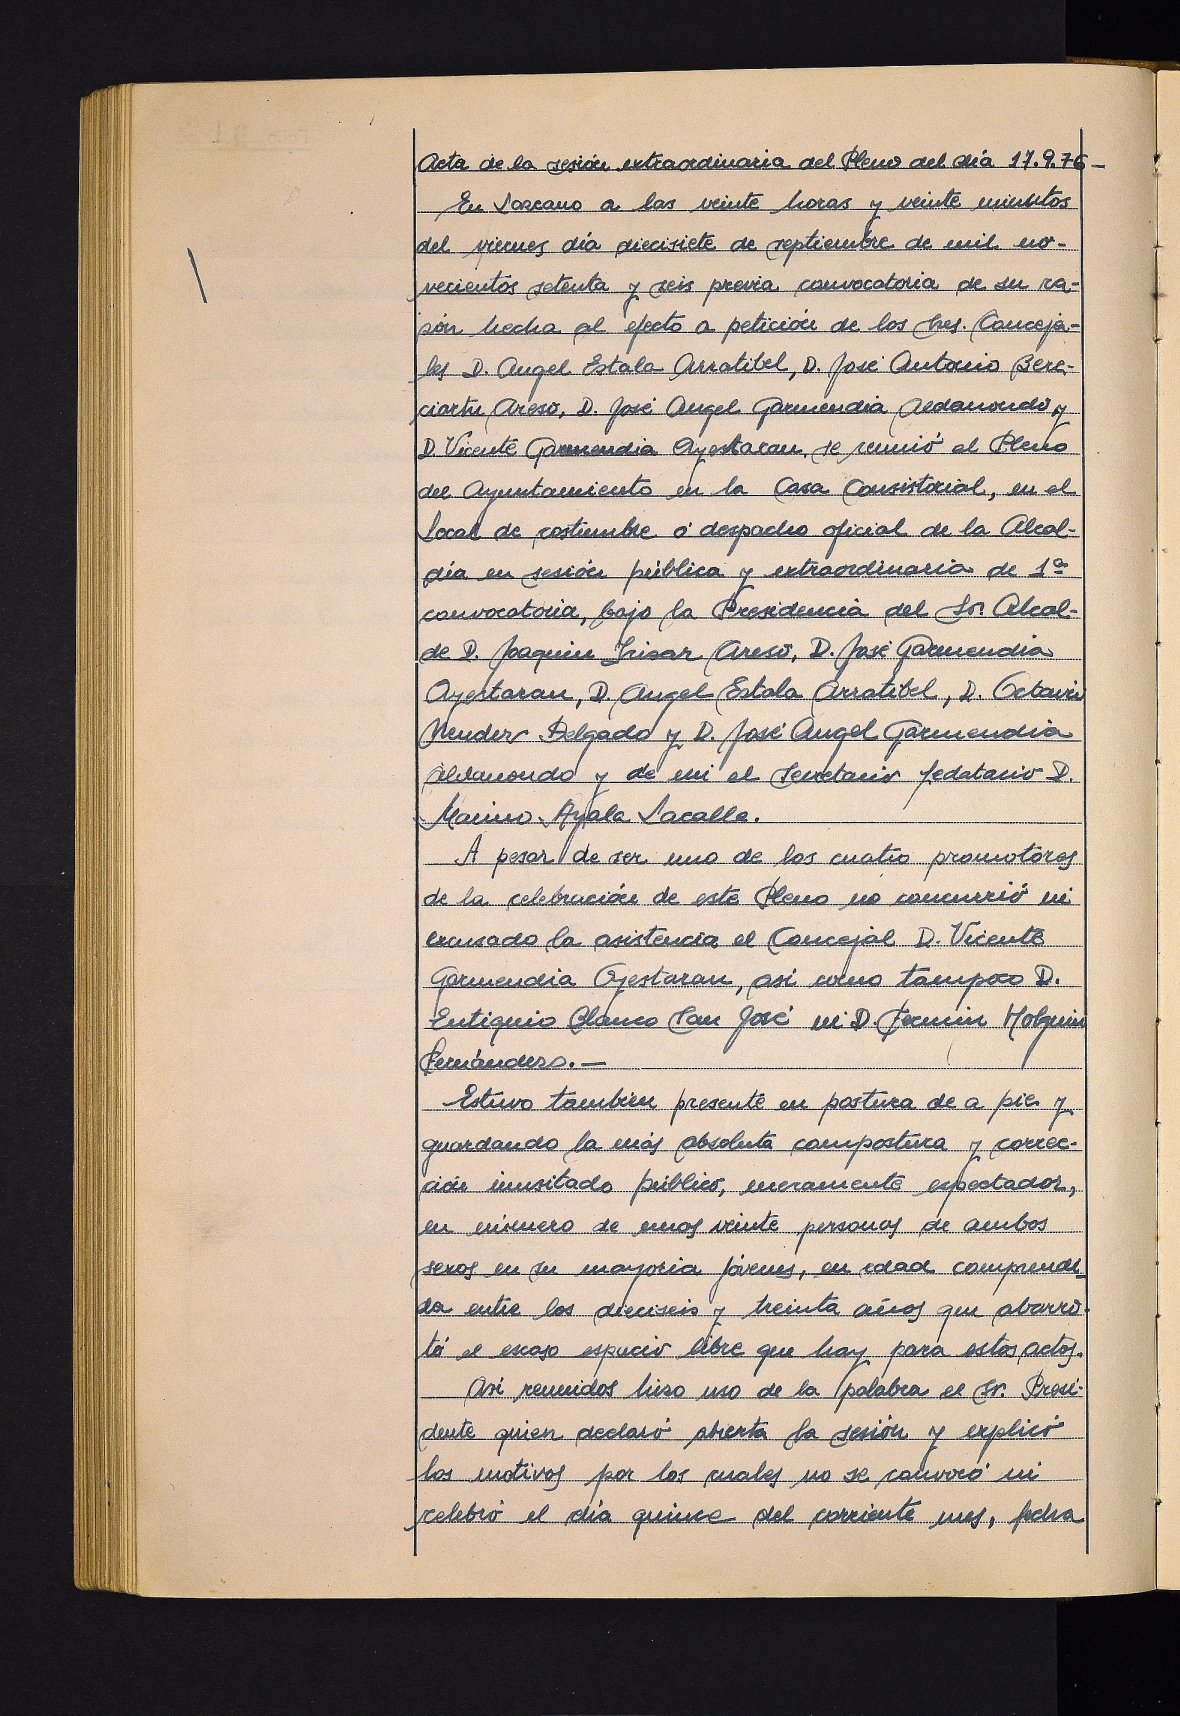 Acta de la sesión extraordinaria del Pleno del día 17.9.76-
En Lazcano a las veinte horas y veinte minutos
del viernes día diecisiete de septiembre de mil no-
vecientos setenta y seis previa convocatoria de su ra-
zón hecha al efecto a petición de los Sres. Conceja-
les D. Angel Estala Arratibel, D. José Antonio Bere-
ciartu Areso, D. José Angel Garmendia Aldanondo y
D. Vicente Garmendia Ayestaran, se reunió el Pleno
del Ayuntamiento en la Casa Consistorial, en el
local de costumbre ó despacho oficial de la Alcal-
día en sesión pública y extraordinaria de 1ª
convocatoria, bajo la Presidencia del Sr. Alcal-
de D. Joaquin Irizar Areso, D. José Garmendia
Ayestaran, D. Angel Estala Arratibel, D. Octavio
Mendez Delgado y D. José Angel Garmendia
Aldanondo y de mi el Secretario fedatario D.
Marino Ayala Lacalle.
A pesar de ser uno de los cuatro promotores
de la celebración de este Pleno no concurrió ni
excusado la asistencia el Concejal D. Vicente
Garmendia Ayestaran, asi como tampoco D.
Eutiquio Blanco San José ni D. Fermin Holguin
Fernández.—
Estuvo tambien presente en postura de a pie y
guardando la más absoluta compostura y correc-
ción inusitado público, meramente espectador,
en número de unos veinte personas de ambos
sexos en su mayoria jóvenes, en edad comprendi-
da entre los dieciseis y treinta años que abarro-
tó el escaso espacio libre que hay para estos actos.
Asi reunidos hizo uso de la palabra el Sr. Presi-
dente quien declaró abierta la sesión y explicó
los motivos por los cuales no se convocó ni
celebró el día quince del corriente mes, fecha